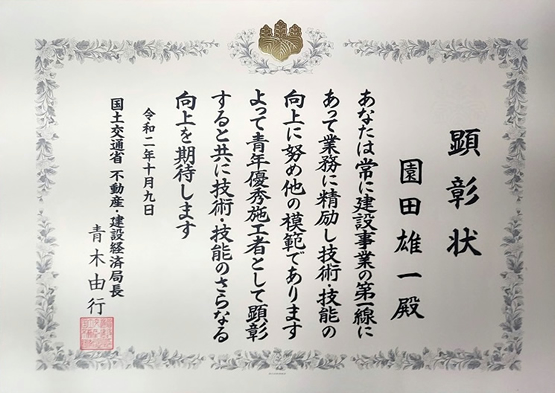 顕彰状
園田雄一殿
あなたは常に建設事業の第一線に
あって業務に精励し技術・技能の
向上に努め他の模範であります
よって青年優秀施工者として顕彰
すると共に技術・技能のさらなる
向上を期待します
令和二年十月九日
国土交通省 不動産・建設経済局長
青木由行